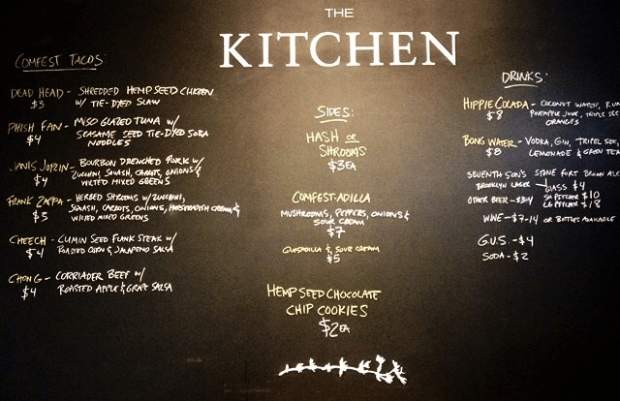 THE
KITCHEN
COMFEST TACOS:
DEAD HEAD - SHREDDED HEMP SEED CHICKEN
$3 W/ TIE-DYED SLAW
PHISH FAN - MISO GLAZED TUNA W/
$4 SEASAME SEED TIE-DYED SOBA
NOODLES
JANIS JOPLIN - BOURBON DRENCHED PORK W/
$4 ZUCCHINI, SQUASH, CARROTS, ONIONS &
WILTED MIXED GREENS
FRANK ZAPPA - HERBED SHROOMS W/ ZUCCHINI,
$3 SQUASH, CARROTS, ONIONS, HORSERADISH CREAM &
WILTED MIXED GREENS
CHEECH - CUMIN SEED FLANK STEAK W/
$4 ROASTED CORN & JALAPENO SALSA
CHONG - CORRIANDER BEEF W/
$4 ROASTED APPLE & GRAPE SALSA
SIDES:
HASH OR
SHROOMS
$3 EA
COMFEST-ADILLA
MUSHROOMS, PEPPERS, ONIONS &
SOUR CREAM
$7
QUESADILLA & SOUR CREAM
$5
HEMP SEED CHOCOLATE
CHIP COOKIES
$2 EA
DRINKS:
HIPPIE COLADA - COCONUT WATER, RUM
$8 PINEAPPLE JUICE, TRIPLE SEC
ORANGES
BONG WATER - VODKA, GIN, TRIPEL SEC,
$8 LEMONADE & GREEN TEA
SEVENTH SON'S STONE FORT BROWN ALE
BROOKLYN LAGER GLASS $4
OTHER BEER - $3/4 SM PITCHER $10
LG PITCHER $18
WINE - $7-14 OR BOTTLES AVAILABLE
G.U.S. - $4
SODA - $2